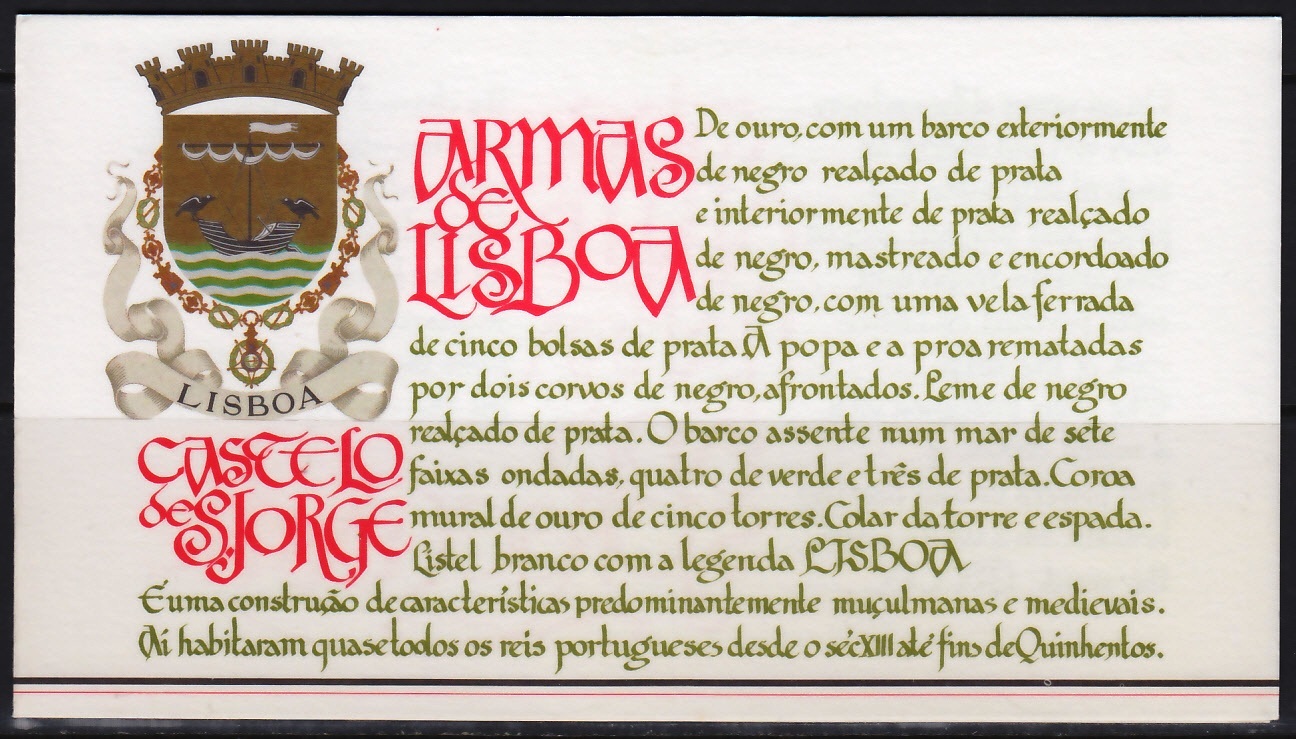 LISBOA
ARMAS
de
LISBOA
De ouro, com um barco exteriormente
de negro realçado de prata
e interiormente de prata realçado
de negro, mastreado e encordoado
de negro, com uma vela ferrada
de cinco bolsas de prata. A popa e a proa rematadas
por dois corvos de negro, afrontados. Leme de negro
realçado de prata. O barco assente num mar de sete
faixas ondadas, quatro de verde e três de prata. Coroa
mural de ouro de cinco torres. Colar da torre e espada.
Listel branco com a legenda LISBOA
CASTELO
de S. JORGE
É uma construção de características predominantemente muçulmanas e medievais.
Ai habitaram quase todos os reis portugueses desde o séc XIII até fins de Quinhentos.